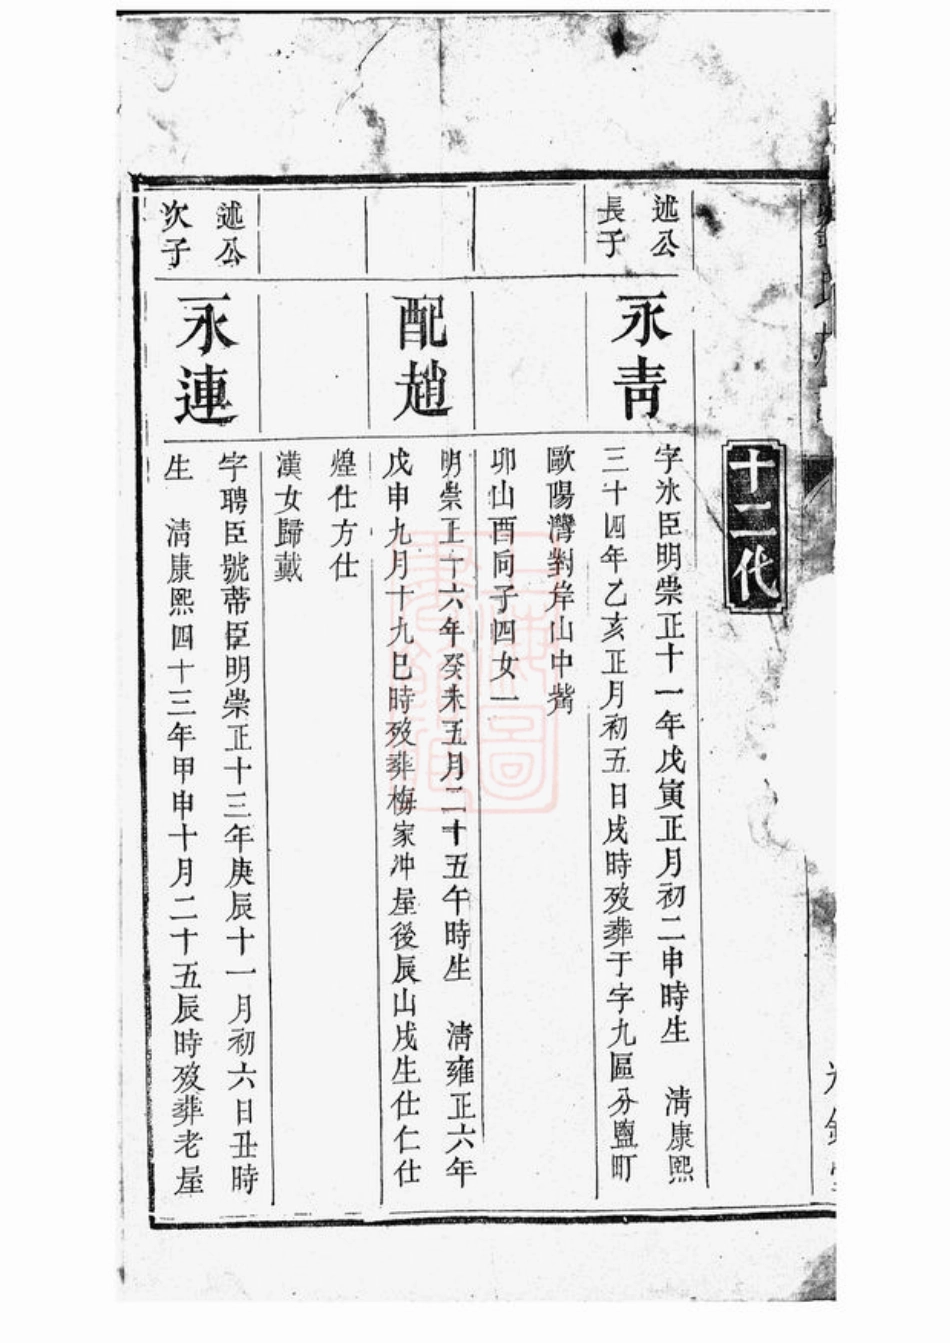 十二代
述公
長子
永青
字氷臣明崇正十一年戊寅正月初二申時生 清康熙
三十四年乙亥正月初五日戌時歿葬于字九區分鹽町
歐陽灣對岸山中觜
卯山酉向子四女一
配趙
明崇正十六年癸未五月二十五午時生 清雍正六年
戊申九月十九巳時歿葬梅家冲屋後辰山戌生仕仁仕
煌仕方仕
漢女歸戴
述公
次子
永連
字聘臣號蒂臣明崇正十三年庚辰十一月初六日丑時
生 清康熙四十三年甲申十月二十五辰時歿葬老屋